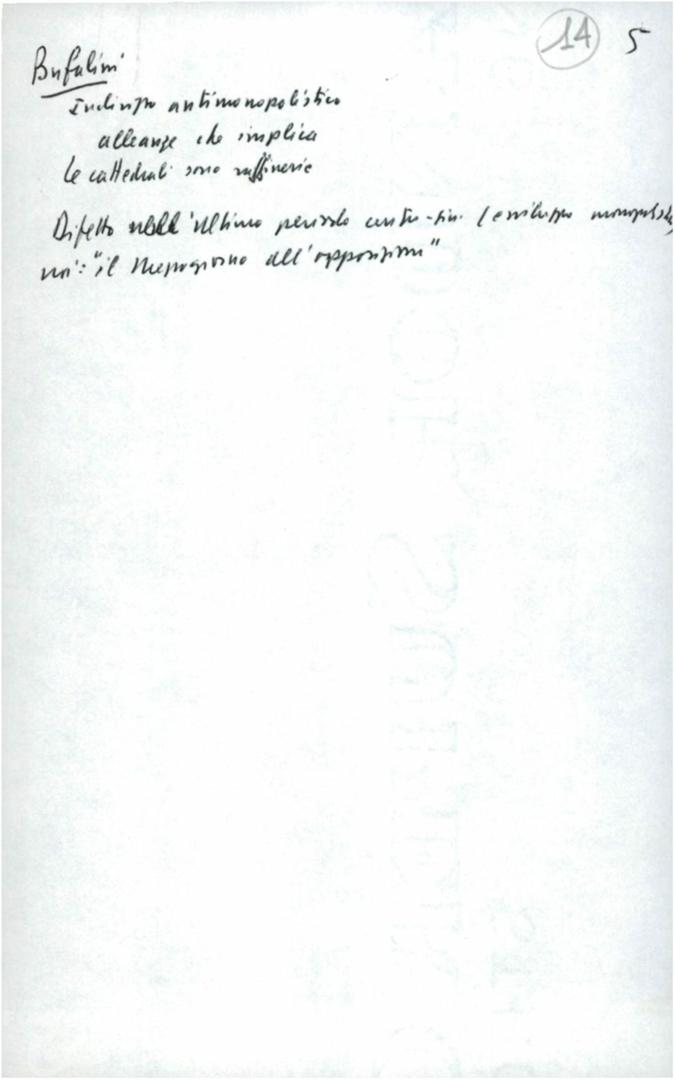 14 5
Bufalini
Indirizzo antimonopolistico
alleanze che implica
Le cattedrali sono raffinerie
Difetto nell'ultimo periodo centro-sin. (sviluppo monopolist
noi: "il Mezzogiorno all'opposizione"